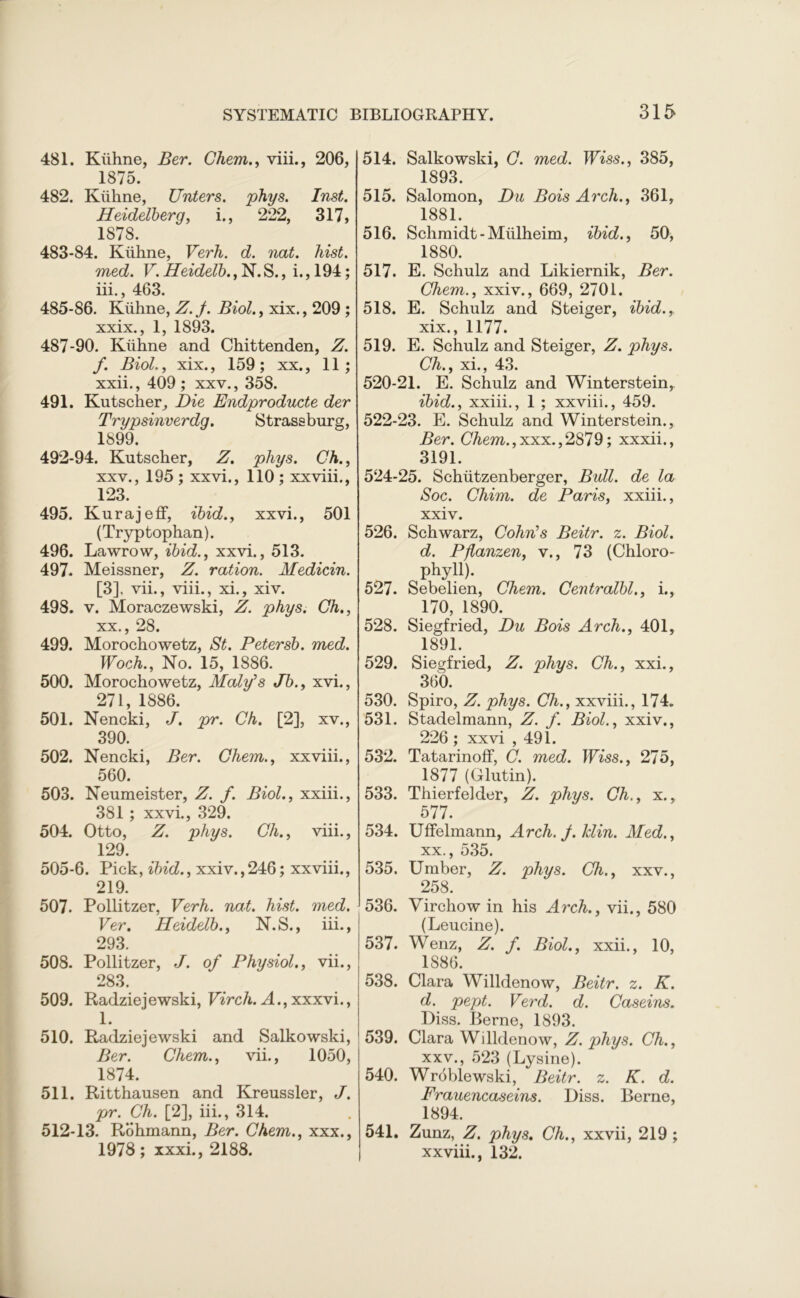 SYSTEMATIC BIBLIOGRAPHY. 315
481. Kühne, Ber. Chem., viii., 206,
1875.
482. Kühne, Unters. phys. Inst.
Heidelberg, i., 222, 317,
1878.
483-84. Kühne, Verh. d. nat. hist.
med. V. Heidelb., N.S., i., 194;
iii., 463.
485-86. Kühne, Z. f. Biol., xix., 209 ;
xxix., 1, 1893.
487-90. Kühne and Chittenden, Z.
f. Biol., xix., 159; xx., 11;
xxii., 409 ; xxv., 358.
491. Kutscher, Die Endproducte der
Trypsinverdg. Strassburg,
1899.
492-94. Kutscher, Z. phys. Ch.,
xxv., 195 ; xxvi., 110 ; xxviii.,
123.
495. Kurajeff, ibid., xxvi., 501
(Tryptophan).
496. Lawrow, ibid., xxvi., 513.
497. Meissner, Z. ration. Medicin.
[3]. vii., viii., xi., xiv.
498. v. Moraczewski, Z. phys. Ch.,
xx., 28.
499. Morochowetz, St. Petersb. med.
Woch., No. 15, 1886.
500. Morochowetz, Maly's Jb., xvi.,
271, 1886.
501. Nencki, J. pr. Ch. [2], xv.,
390.
502. Nencki, Ber. Chem., xxviii.,
560.
503. Neumeister, Z. f. Biol., xxiii.,
381 ; xxvi., 329.
504. Otto, Z. phys. Ch., viii.,
129.
505-6. Pick, ibid., xxiv., 246; xxviii.,
219.
507. Pollitzer, Verh. nat. hist. med.
Ver. Heidelb., N.S., iii.,
293.
508. Pollitzer, J. of Physiol., vii.,
283.
509. Radziejewski, Virch. A., xxxvi.,
1.
510. Radziejewski and Salkowski,
Ber. Chem., vii., 1050,
1874.
511. Ritthausen and Kreussler, J.
pr. Ch. [2], iii., 314.
512-13. Röhmann, Ber. Chem., xxx.,
1978 ; xxxi., 2188.
514. Salkowski, C. med. Wiss., 385,
1893.
515. Salomon, Du Bois Arch., 361,
1881.
516. Schmidt-Mülheim, ibid., 50,
1880.
517. E. Schulz and Likiernik, Ber.
Chem., xxiv., 669, 2701.
518. E. Schulz and Steiger, ibid.,
xix., 1177.
519. E. Schulz and Steiger, Z. phys.
Ch., xi., 43.
520-21. E. Schulz and Winterstein,
ibid., xxiii., 1 ; xxviii., 459.
522-23. E. Schulz and Winterstein.,
Ber. Chem., xxx., 2879; xxxii.,
3191.
524-25. Schützenberger, Bull. de la
Soc. Chim. de Paris, xxiii.,
xxiv.
526. Schwarz, Cohn's Beitr. z. Biol.
d. Pflanzen, v., 73 (Chloro-
phyll).
527. Sebelien, Chem. Centralbl., i.,
170, 1890.
528. Siegfried, Du Bois Arch., 401,
1891.
529. Siegfried, Z. phys. Ch., xxi.,
360.
530. Spiro, Z. phys. Ch., xxviii., 174.
531. Stadelmann, Z. f. Biol., xxiv.,
226 ; xxvi , 491.
532. Tatarinoff, C. med. Wiss., 275,
1877 (Glutin).
533. Thierfelder, Z. phys. Ch., x.,
577.
534. Uffelmann, Arch. f. klin. Med.,
xx., 535.
535. Umber, Z. phys. Ch., xxv.,
258.
536. Virchow in his Arch., vii., 580
(Leucine).
537. Wenz, Z. f. Biol., xxii., 10,
1886.
538. Clara Willdenow, Beitr. z. K.
d. pept. Verd. d. Caseins.
Diss. Berne, 1893.
539. Clara Willdenow, Z. phys. Ch.,
xxv., 523 (Lysine).
540. Wróblewski, Beitr. z. K. d.
Frauencaseins. Diss. Berne,
1894.
541. Zunz, Z. phys. Ch., xxvii, 219 ;
xxviii., 132.